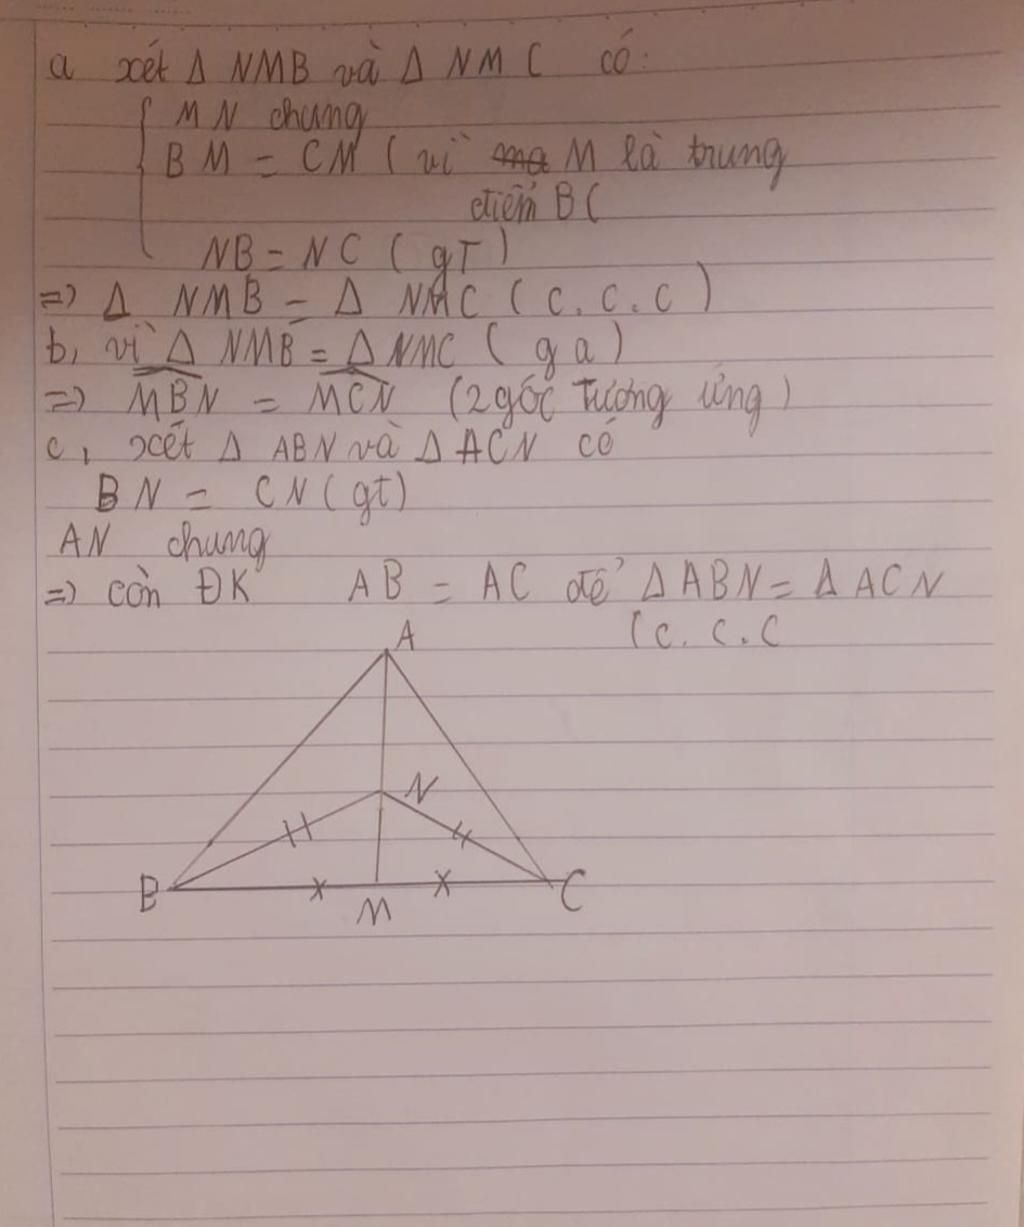 a xét Δ NMB và Δ NMC có:
MN chung
BM = CM ( vì M là trung
điểm BC
NB = NC ( gT )
=> Δ NMB = Δ NMC ( c. c. c )
b, vì Δ NMB = Δ NMC ( g a )
=> MBN = MCN (2 góc tương ứng )
c, xét Δ ABN và Δ ACN có
BN = CN (gt)
AN chung
=> còn ĐK AB = AC để Δ ABN = Δ ACN
(c. c. c
A
N
B
M
C